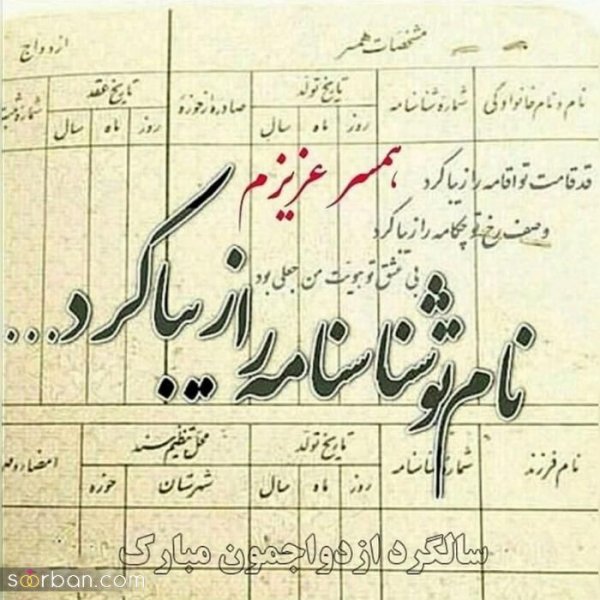 مشخصات همسر
ازدواج
نام و نام خانوادگی
شماره شناسنامه
تاریخ تولد
روز ماه سال
صادره از حوزه
تاریخ عقد
روز ماه سال
شماره ثبت
همسر عزیزم
قد قامت تو اقامه را زیبا کرد
وصف رخ تو چکامه را زیبا کرد
بی عشق تو هویت من جعلی بود
نام تو شناسنامه را زیبا کرد...
نام فرزند
شماره شناسنامه
تاریخ تولد
روز ماه سال
محل تنظیم سند
شهرستان حوزه
امضاء و
سالگرد ازدواجمون مبارک
soorban.com